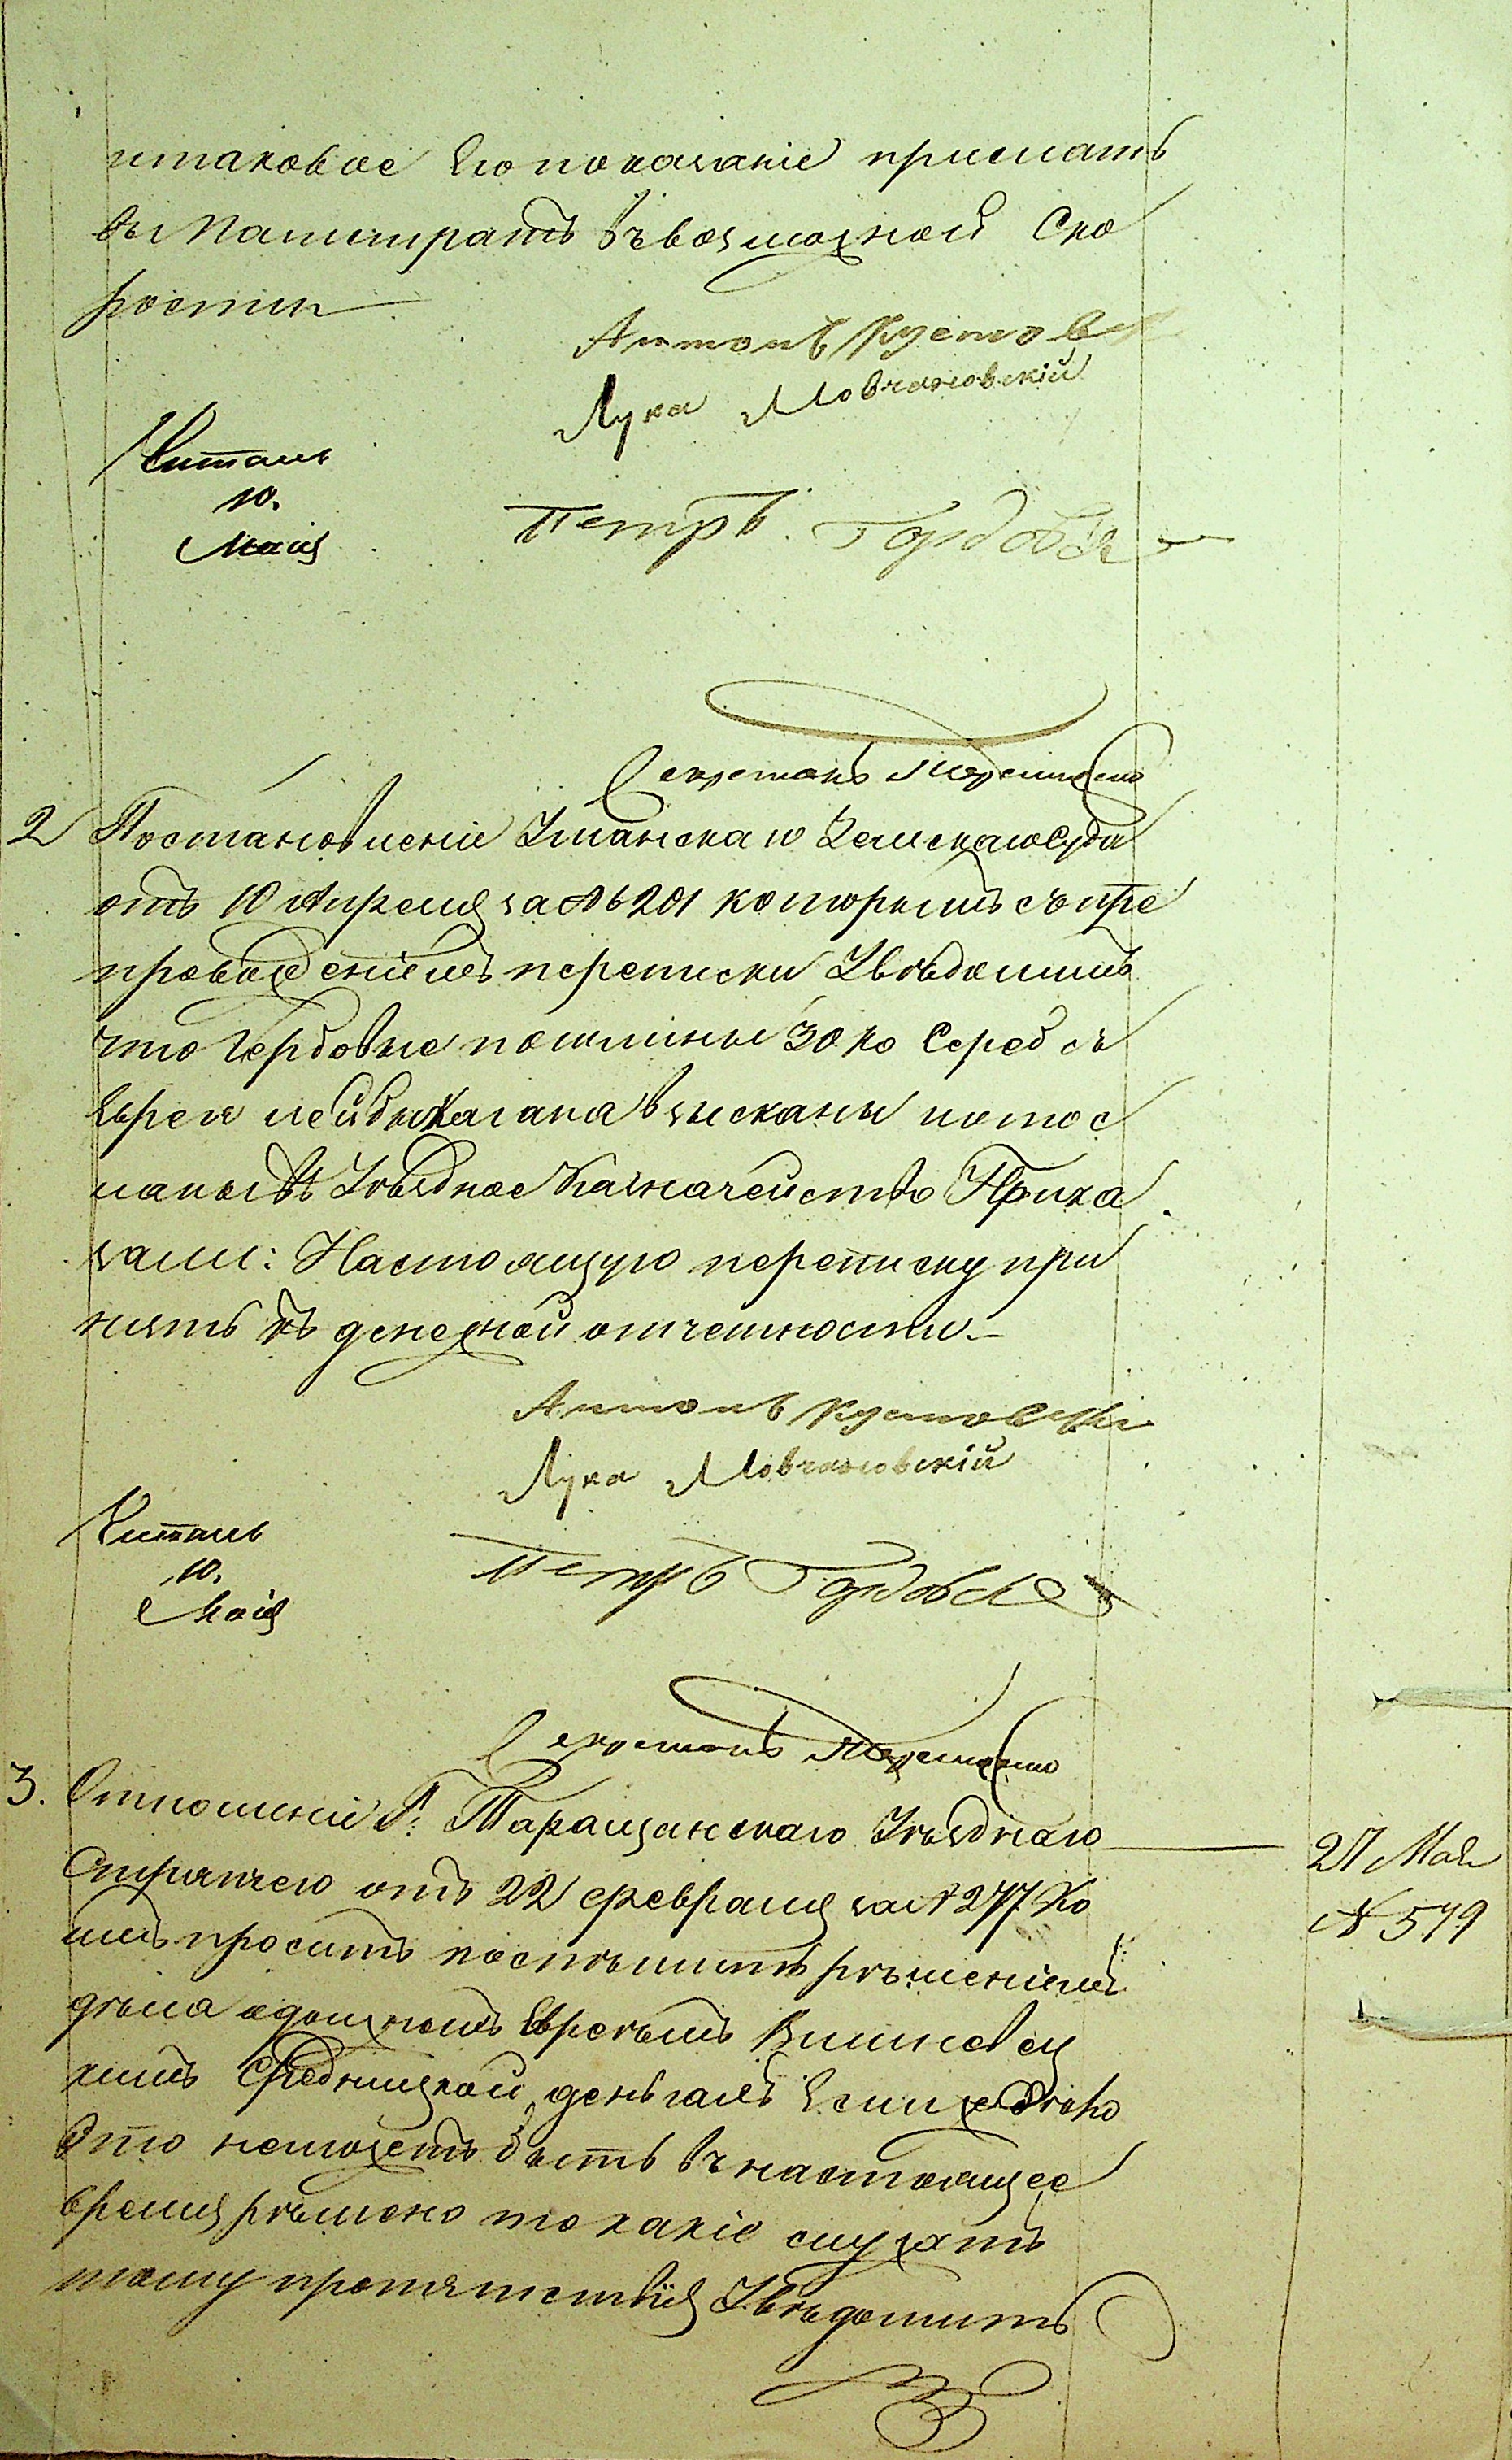 итаковое его показаніе прислать
въ Магистратъ въ возможной Ско
рости
Антонъ Кустовскі
Лука Мовчановскій
Читалъ
10.
Маія
Петръ
Секретарь
2 Постановленіе Уманскаго Земскаго Суда
отъ 10 Апреля за № 6201 которымъ съ пре
провожденіемъ переписки Увѣдомитъ
что Гербовые пошлины 30 ко Сереб съ
Еврея Лейбы Кагана взысканы и отос
ланы въ Уѣздное Казначейство Прика
зали: Настоящую переписку при
нять къ денежной отчетности.—
Антонъ Кустовскі
Лука Мовчановскій
Читалъ
10.
Маія
Петръ
Секретарь
3. Отношеніе Г. Таращанскаго Уѣзднаго
27 Мая
Стряпчего отъ 22 февраля за № 277. Ко
№ 579
имъ проситъ поспѣшить рѣшеніемъ
дѣла одолжномъ Евреемъ
кимъ деньгамъ Если же дѣло
Это неможетъ быть въ настоящее
время рѣшено то какіе служатъ
тому препятствія Увѣдомить